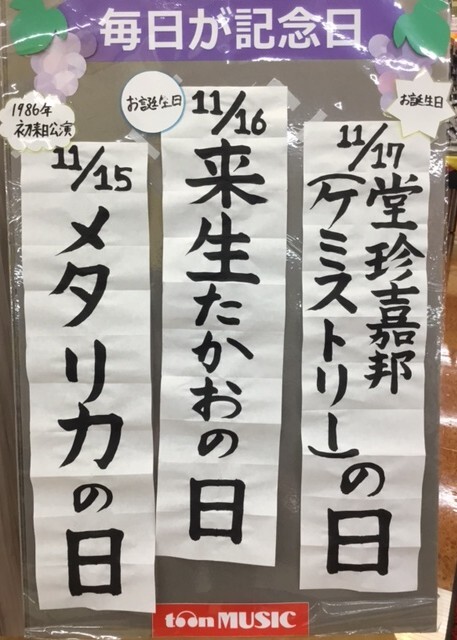 毎日が記念日
お誕生日
11/17
堂珍嘉邦
(ケミストリー)の日
お誕生日
11/16
来生たかおの日
1986年
初来日公演
11/15
メタリカの日
toon MUSIC